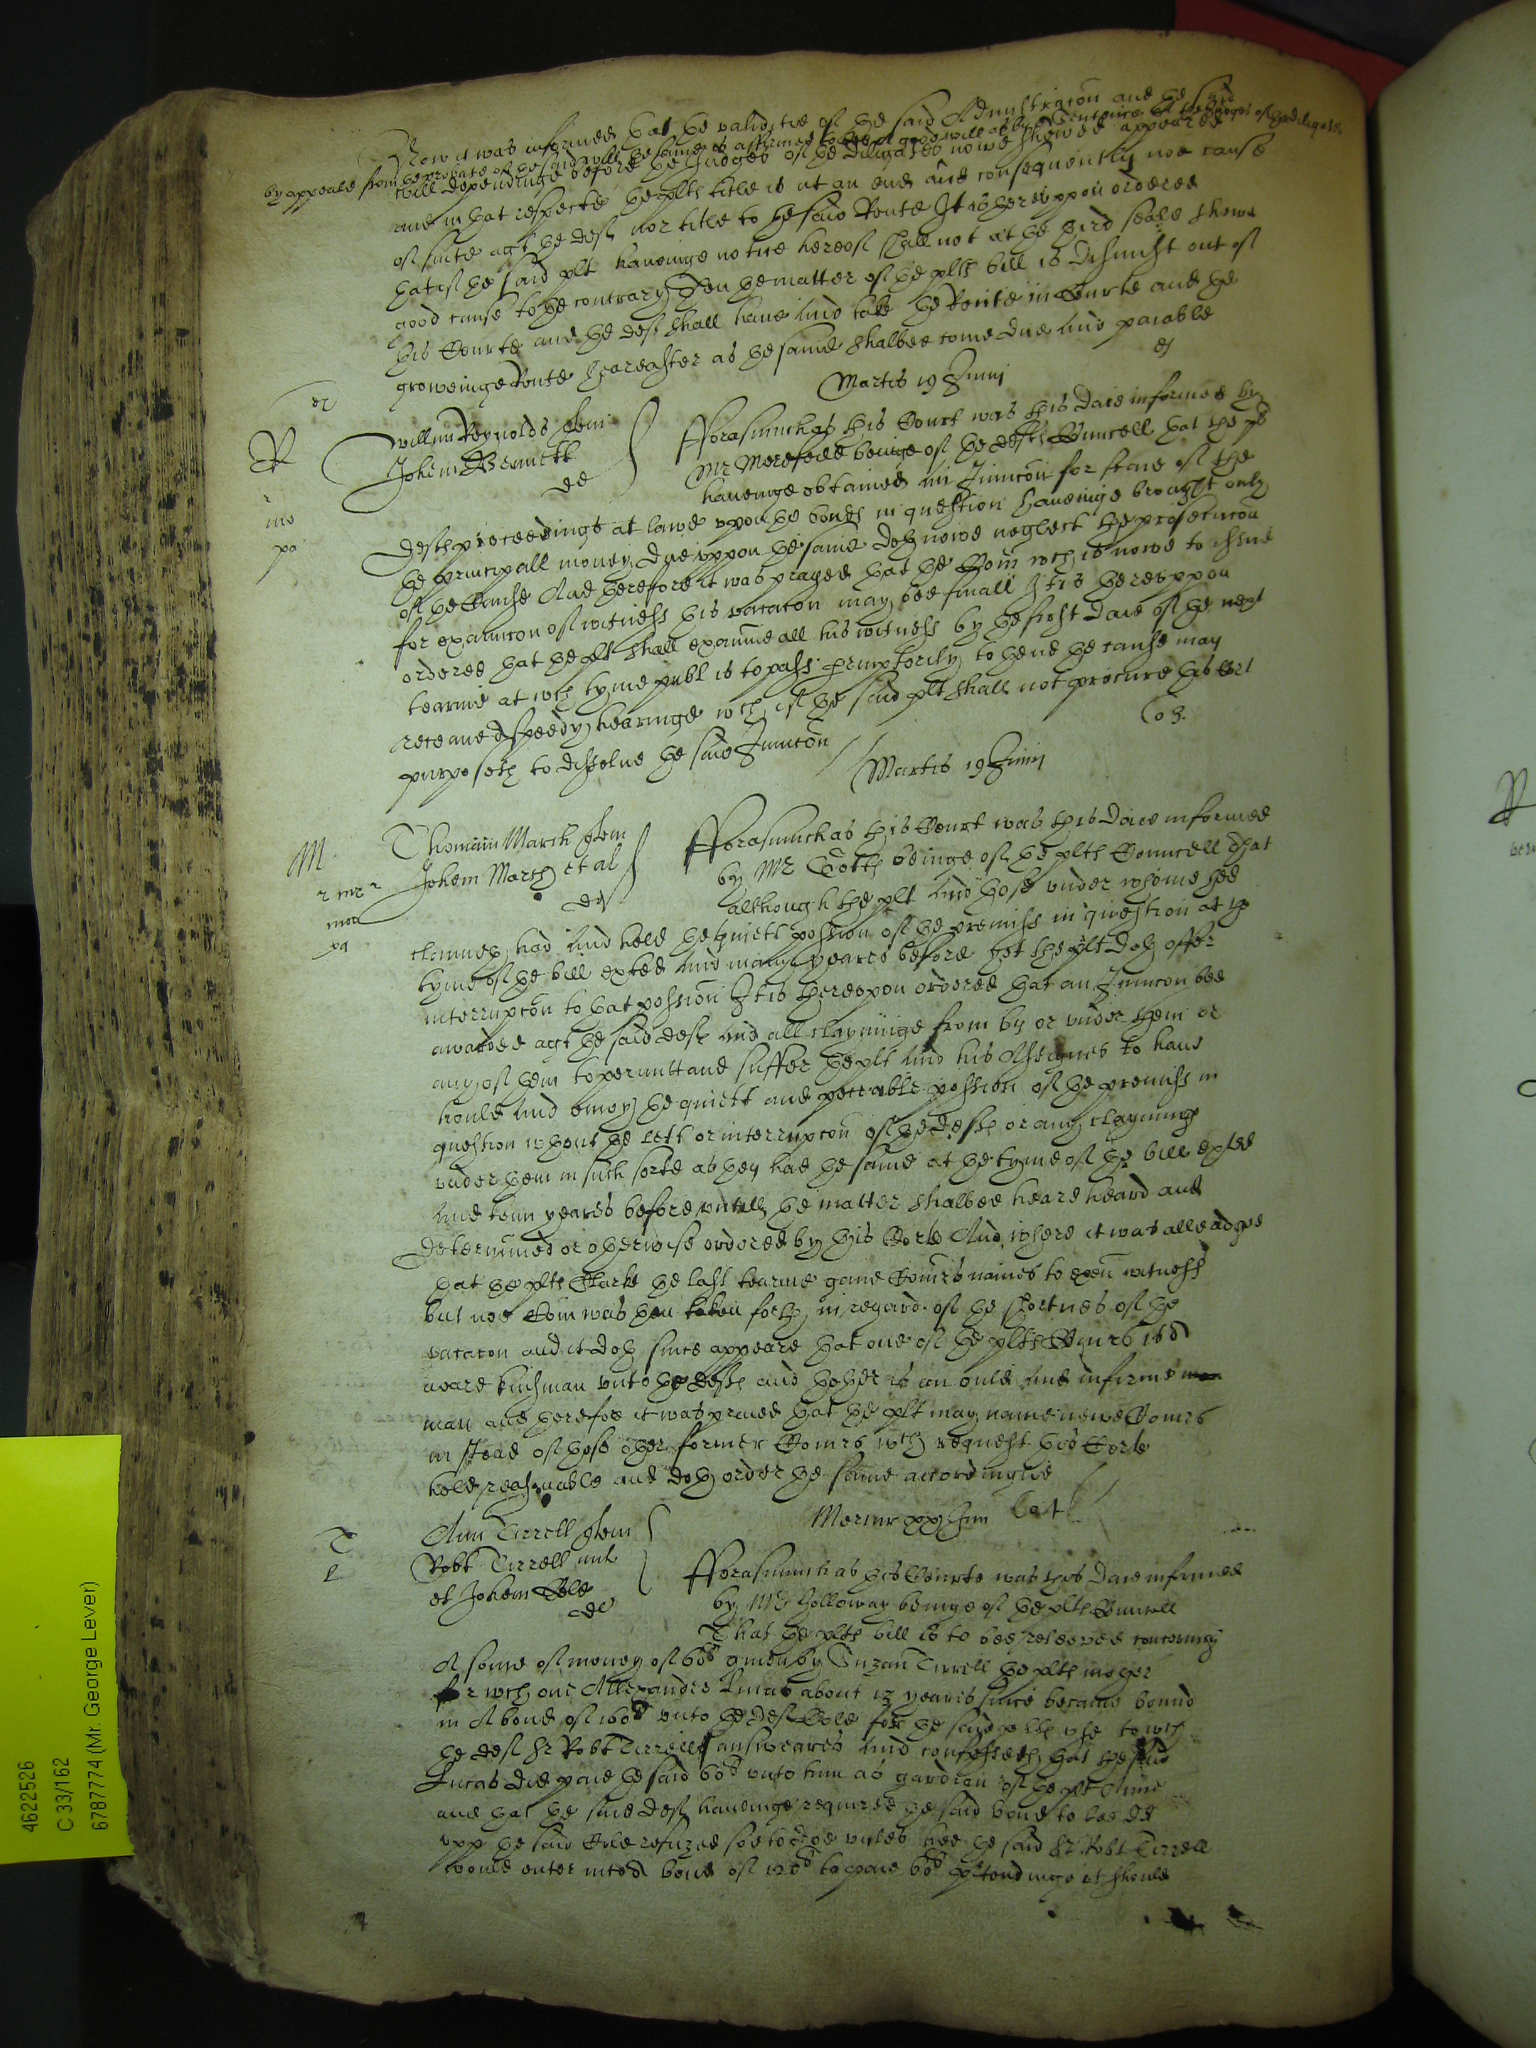 Now it was informed that the validitie of the said Administracon and the said
by appeale from the probate of the said will the same is affirmed to bee a good will as by sentence of the Judges of the deligates
will dependinge before the Judges of the Diligates nowe shewed appeared
and in that respecte the plts title is at an end and consequently noe cause
of suite agt the deft nor title to the said Rente It is thereuppon ordered
that if the said plt haveinge notice hereof shall not at the third seale shewe
good cause to the contrary Then the matter of the plts bill is dismist out of
this Courte and the deft shall have and take the Rente in Courte and the
groweinge Rente hereafter as the same shalbee come due and paiable
Martis 19 Junij
R
Willm Reynolds quer
Johem Bennett
de
Forasmuch as this Court was this daie informed by
Mr Merefeild beinge of the defts Councell that the plt
haveinge obtained an Iniunccon for staie of the
defts proceedings at lawe uppon the bonds in question haveinge brought only
the principall money due uppon the same doth nowe neglect the prosecucon
of the Cause And therefore it was prayed that the Com wch is nowe to issue
for examinacon of witness this vacacon may bee finall It is thereuppon
ordered that the plt shall examine all his witness by the first daie of the next
tearme at wch tyme publ is to pass peremptorily to thend the cause may
receave a speedy hearinge wch if the said plt shall not procure this Cort
purposeth to dissolve the said Iniunccon
Martis 19 Junij
M
Thomam March quer
Johem March et al
def
Forasmuch as this Court was this daie informed
by Mr beinge of the plts Councell that
although the plt and those under whome hee
claymeth had and held the quiett possion of the premiss in question at the
tyme of the bill exhted and many yeares before yet the plt doth offer
interrupcon to that possion It is thereupon ordered that an Iniunccon bee
awarded agt the said deft and all clayminge from by or under them or
any of them to permitt and suffer the plt and his Assignes to have
hould and enioy the quiett and peceable possion of the premiss in
question wthout the lett or interrupcon of the defts or any clayminge
under them in such sorte as they had the same at the tyme of the bill exhted
and tenn yeares before untill the matter shalbee heare heard and
determined or otherwise ordered by this Corte And where it was alleadged
that the plts Clarke the last tearme gave Comrs names to exen witness
but noe Com was then taken forth in regard of the shortnes of the
vacacon and it doth since appeare that one of the plts Comrs is a
neare kinsman unto the defts and thother is an ould and infirme man
man and therefore it was praied that the plt may name newe Comrs
in stead of those other former Comrs wch request this Corte
held reasonable and doth order the same accordinglie
Mercur xxo Jun
T
Ann Tirrell quer
Robt Tirrell mil
et Johem Cole
def
Forasmuch as this Courte was this daie informed
by Mr Holloway beinge of the plts Councell
That the plts bill is to bee releeved concerning
A some of money of 60li given by Suzan Tirrell the plts mother
for wch one Allexander Lucas about 12 yeares since became bound
in A bond of 100li unto the deft Cole for the said plts use to wch
the deft Sr Robt Tirrell answeares and confesseth that the said
Lucas did paie the said 60li unto him as gardian of the plt Anne
and that the said deft haveinge required the said bond to bee dd
upp the said Cole refuzed soe to doe unles hee the said Sr Robt Tirrell
would enter into A bond of 120li to paie 60li p'tendinge it should
4622526
C 33/162
6787774 (Mr. George Lever)